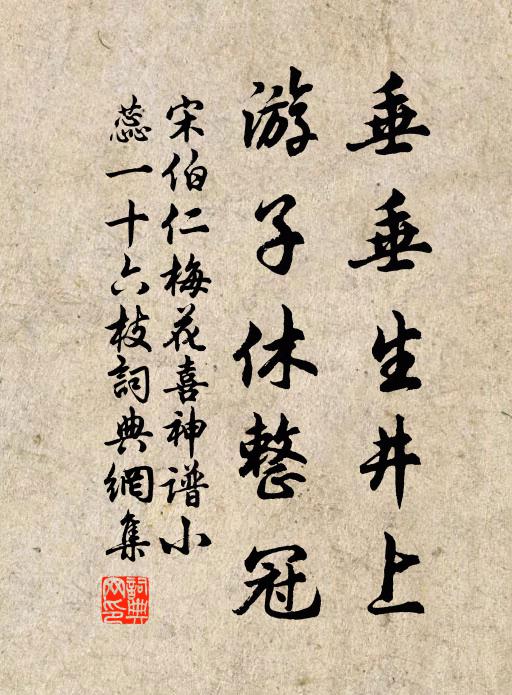 垂垂生井上
游子休整冠
宋伯仁梅花喜神谱小
蕊一十六枝詞典網集
詞典網印